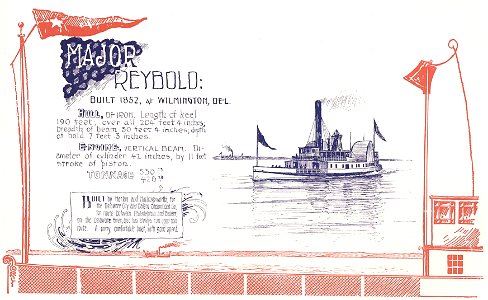 MAJOR
REYBOLD:
BUILT 1852, AT WILMINGTON, DEL.
HULL, OF IRON. Length of keel
190 feet, over all 204 feet 4 inches,
breadth of beam 30 feet 4 inches, depth
of hold 7 feet 3 inches.
ENGINE, VERTICAL BEAM. Di-
ameter of cylinder 42 inches, by 11 feet
stroke of piston.
TONNAGE 550
420
BUILT by Harlan and Hollingsworth, for
the Delaware City and Salem Steamboat Co.,
for route between Philadelphia and Salem,
on the Delaware River, but has always run upon this
route. A very comfortable boat, with good speed.